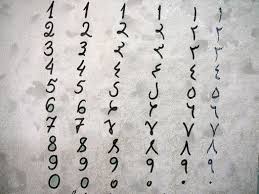 1 1 1 1 ١ ١
2 2 2 ٢ ٢
3 3 ٣ ٣
4 4 ٤ ٤
5 5 5 ٥
6 6 ٦ ٦
7 7 7 ٧ ٧
8 8 8 8 ٨ ٨
9 9 9 9 ٩ ٩
0 0 0 0 ٠ ٠